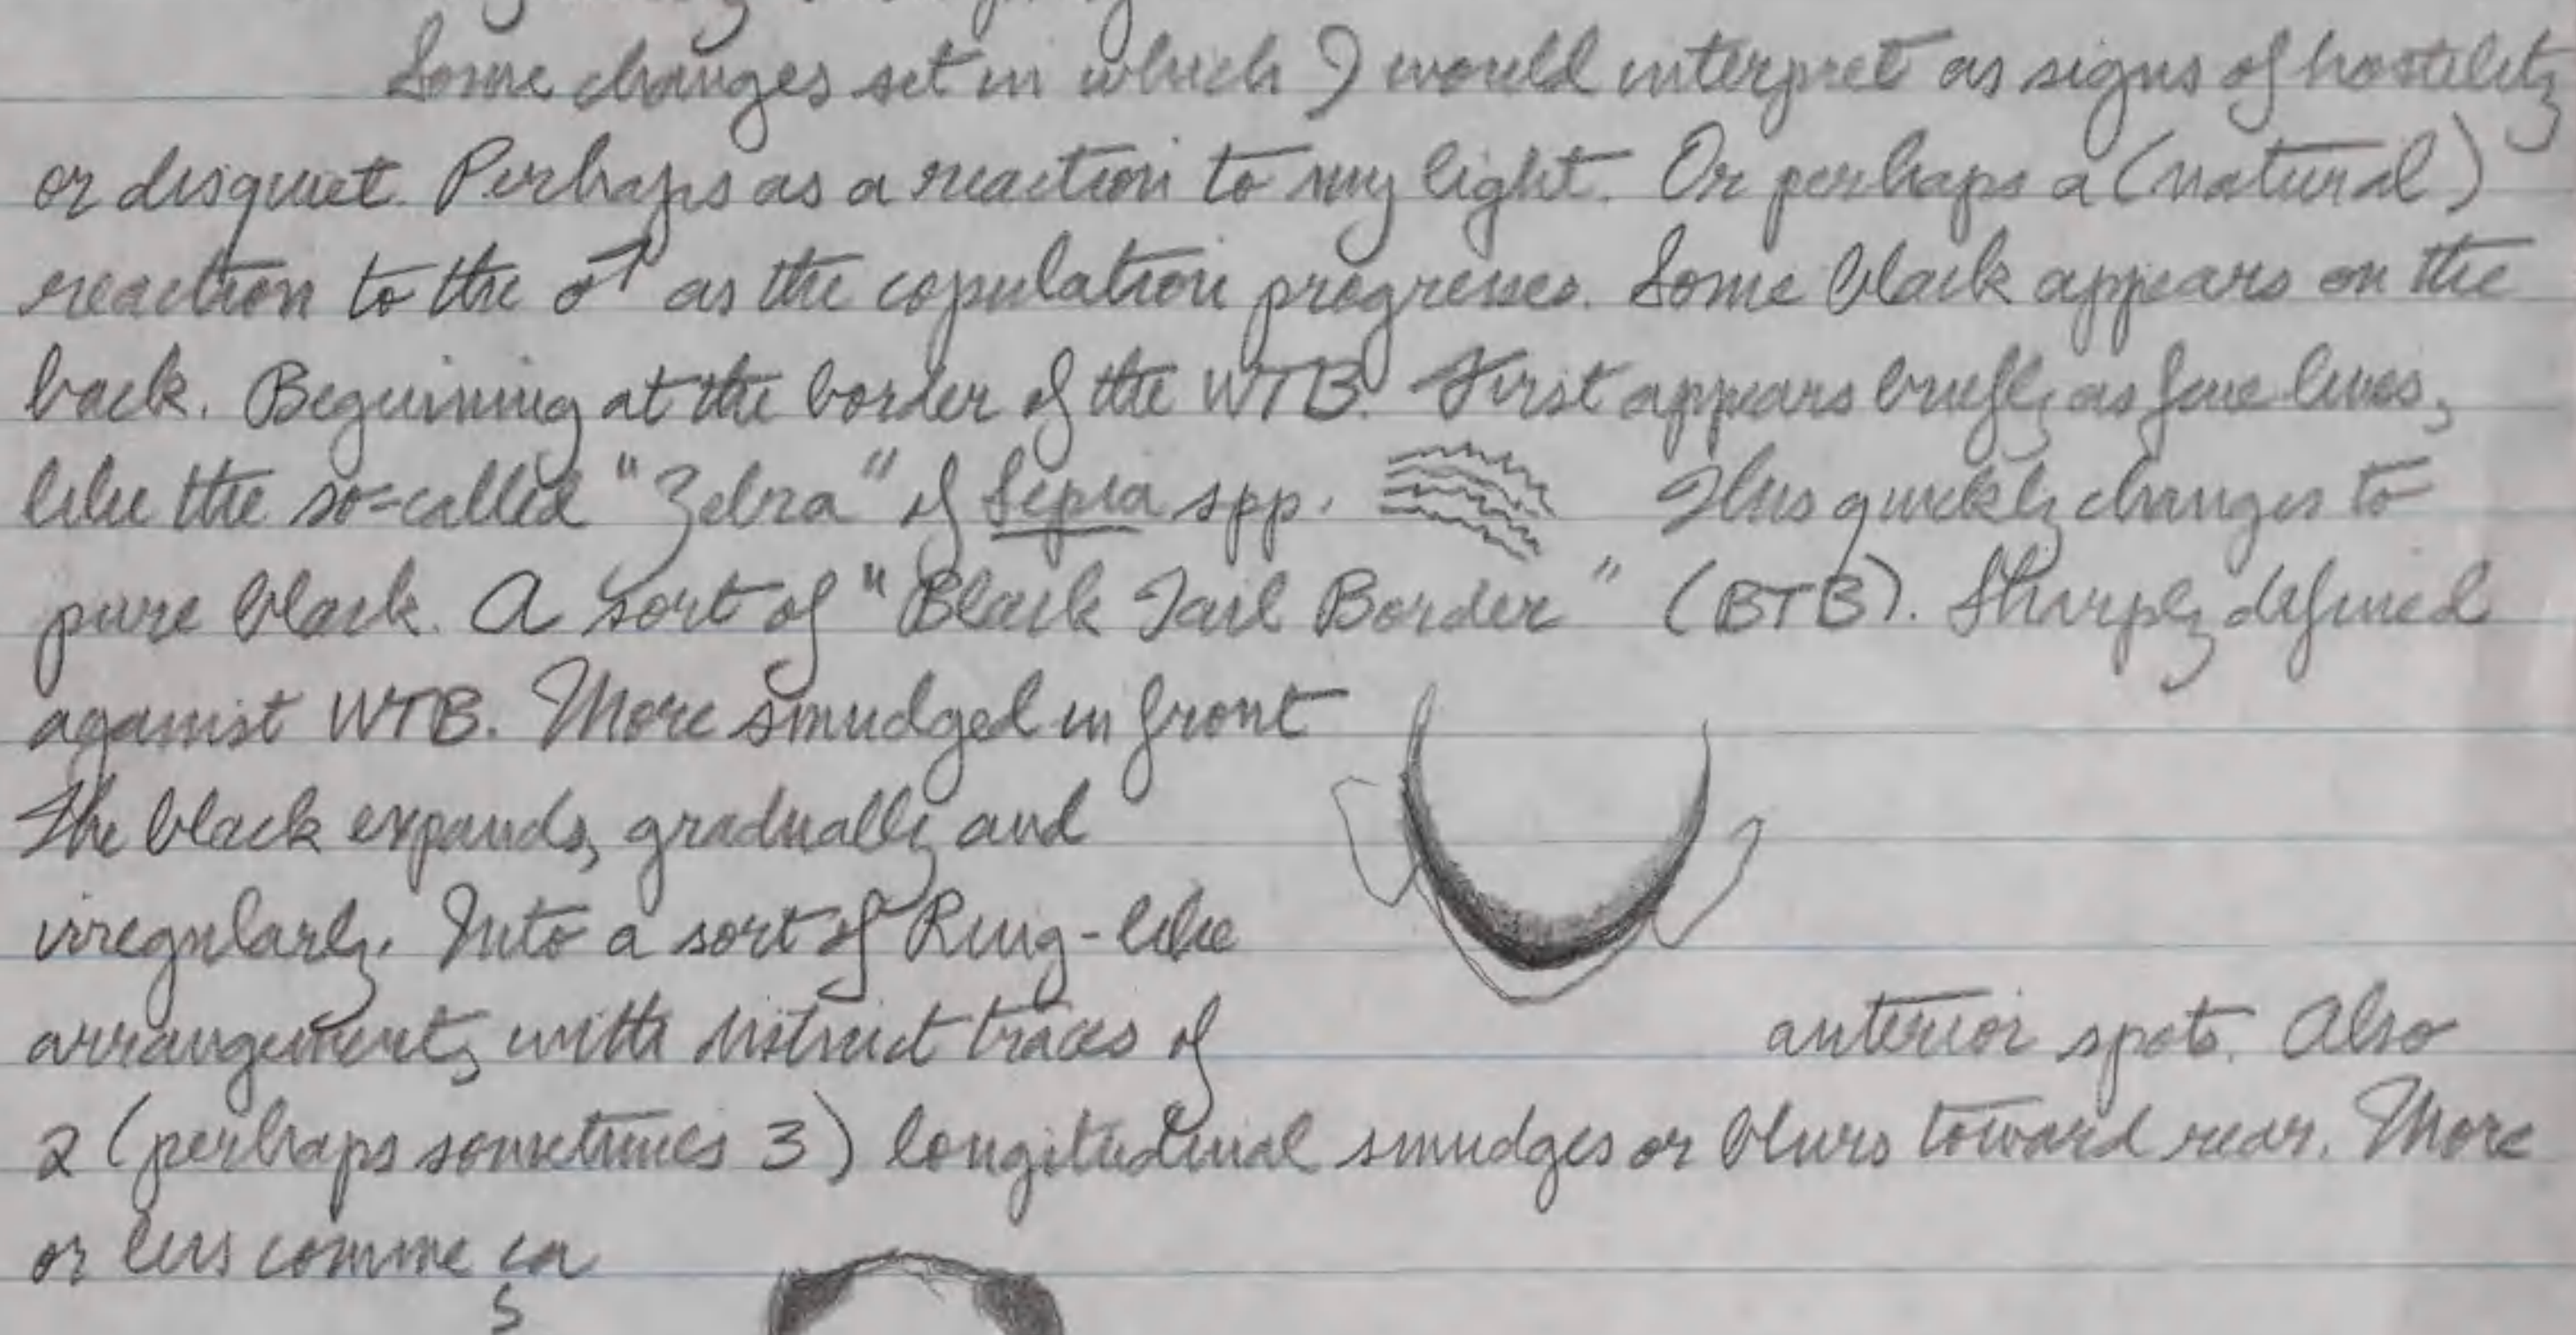 Some changes set in which I would interpret as signs of hostility
or disquiet. Perhaps as a reaction to my light. Or perhaps a (natural)
reaction to the ♂ as the copulation progresses. Some black appears on the
back. Beginning at the border of the WTB. First appears briefly as fine lines,
like the so-called "Zebra" of Sepia spp. This quickly changes to
pure black. A sort of "Black Tail Border" (BTB). Sharply defined
against WTB. More smudged in front
The black expands, gradually and
irregularly. Into a sort of Ring-like
arrangement, with distinct traces of anterior spots. Also
2 (perhaps sometimes 3) longitudinal smudges or blurs toward rear. More
or less comme ça